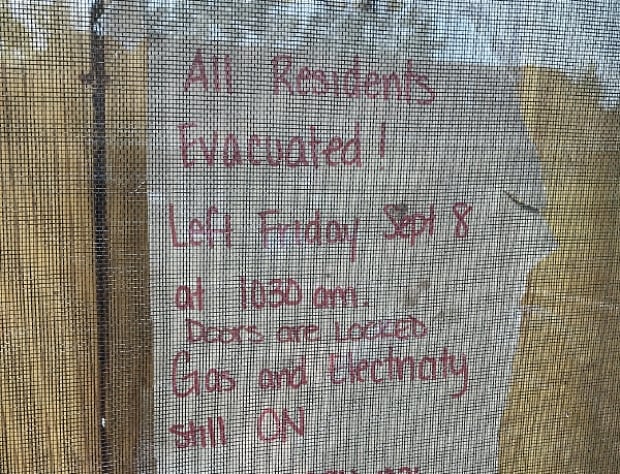 All Residents
Evacuated!
Left Friday Sept 8
at 1030 am.
Doors are LOCKED
Gas and Electricity
still ON